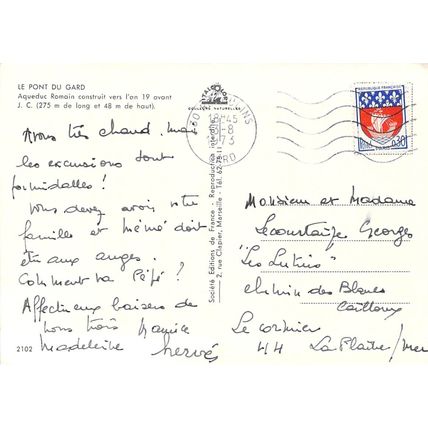 LE PONT DU GARD
Aqueduc Romain construit vers l'an 19 avant
J. C. (275 m de long et 48 m de haut).
Avons très chaud. mais
les excursions sont
formidables !
Vous devez avoir votre
famille et Mémé doit
être aux anges.
Comment va Pépé ?
Affectueux baisers de
nous trois Maurice
Madeleine Hervés
2102
Société Editions de France - Reproduction interdite
2, rue Clapier, Marseille - Tél. 62-78-11
COULEURS NATURELLES
16-45
-8
GARD
REPUBLIQUE FRANÇAISE
PARIS
0,30
Monsieur et Madame
Georges
"Les Lutins"
chemin des Blancs
Cailloux
Le cormier
44 La Plaine/Mer